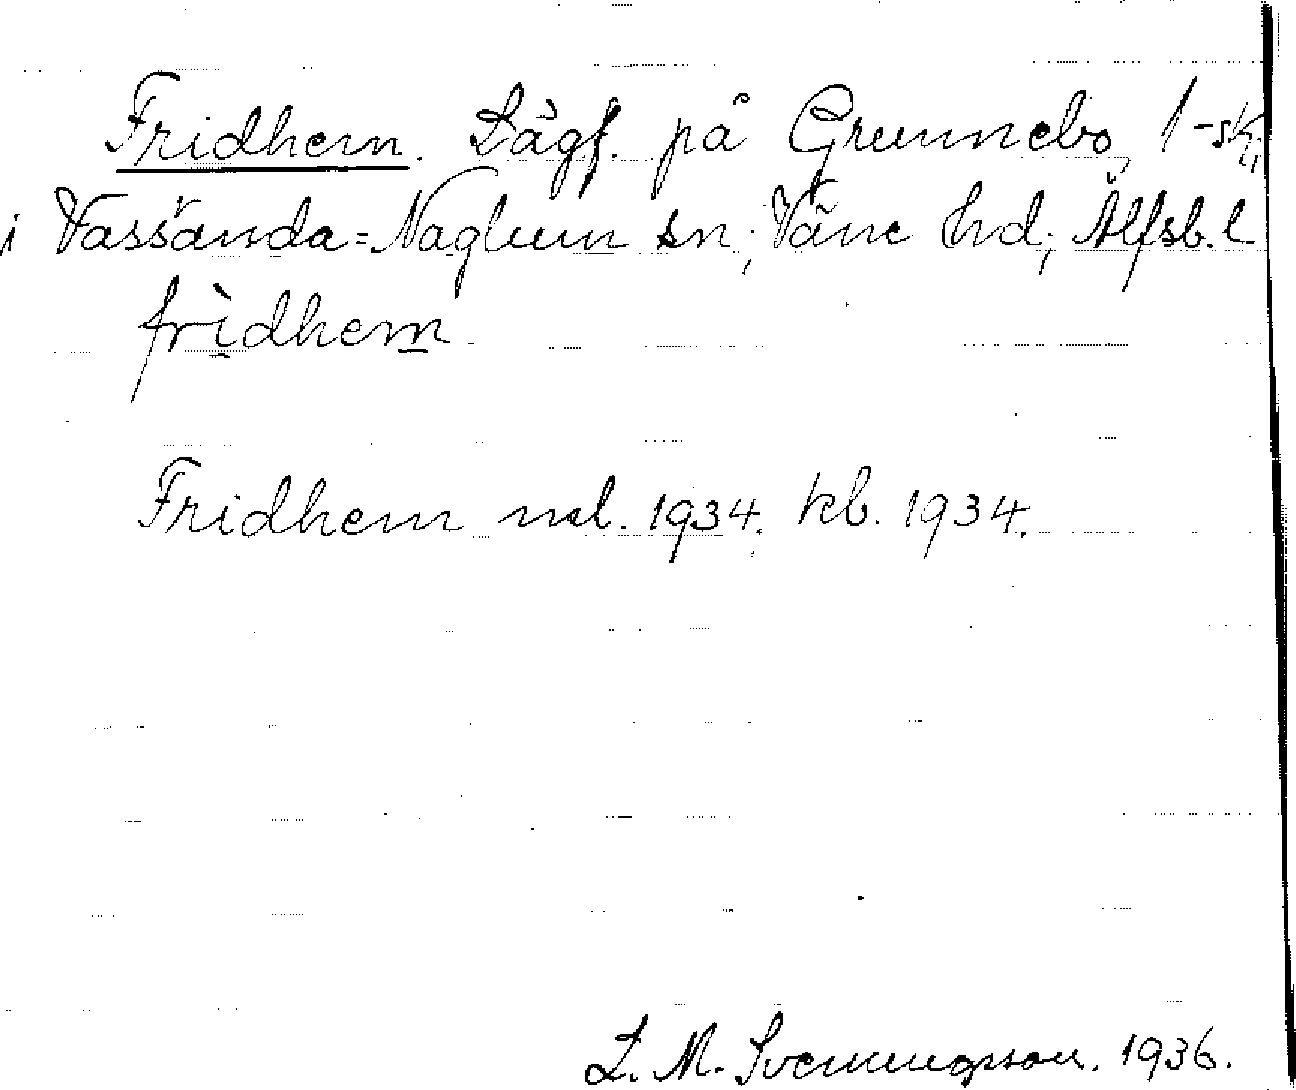 Fridhem. Lägf. på Grunnebo 1-sk.
i Vassända=Naglum sn; Väne hd; Älfsb. l
fridhem
Fridhem msl. 1934. kb. 1934.
L. M. Svenungsson. 1936.